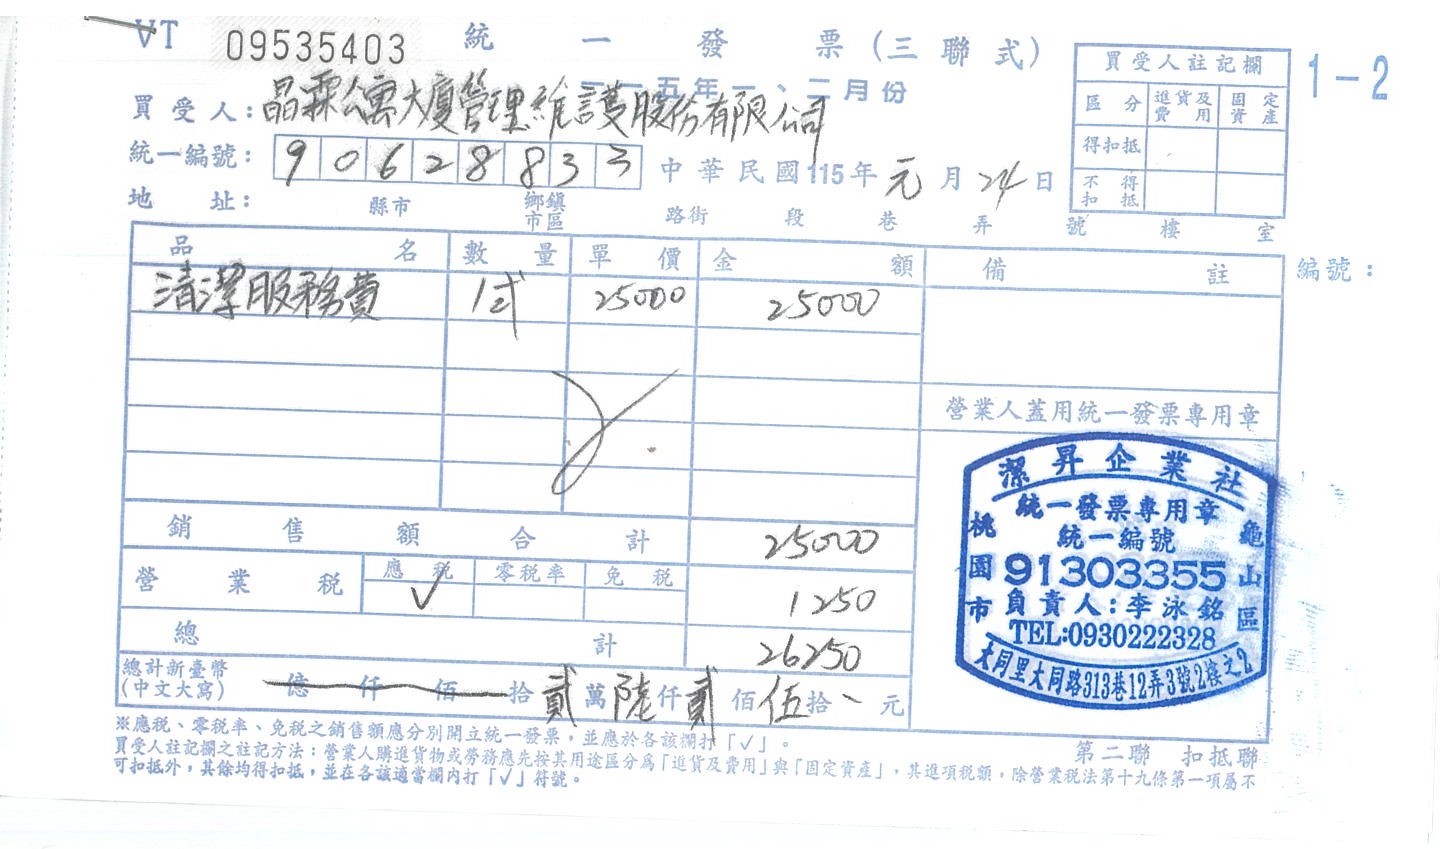 VT 09535403 統一發票(三聯式)
一一五年一、二月份
1-2
買受人註記欄
區分 進貨及費用 固定資產
得扣抵
不得扣抵
買受人:晶霖公寓大廈管理維護股份有限公司
統一編號:90628833 中華民國115年元月24日
地址: 縣市 鄉鎮市區 路街 段 巷 弄 號 樓 室
品名 數量 單價 金額 備註 編號:
清潔服務費 1式 25000 25000
營業人蓋用統一發票專用章
銷售額合計 25000
營業稅 應稅 ✓ 零稅率 免稅 1250
總計 26250
總計新臺幣(中文大寫) 億仟佰拾貳萬陸仟貳佰伍拾 元
潔昇企業社
統一發票專用章
統一編號
91303355
負責人:李泳銘
TEL:0930222328
桃園市 龜山區
大同里大同路313巷12弄3號2樓之2
※應稅、零稅率、免稅之銷售額應分別開立統一發票,並應於各該欄打「✓」。
第二聯 扣抵聯
買受人註記欄之註記方法:營業人購進貨物或勞務應先按其用途區分為「進貨及費用」與「固定資產」,其進項稅額,除營業稅法第十九條第一項屬不
可扣抵外,其餘均得扣抵,並在各該適當欄內打「✓」符號。